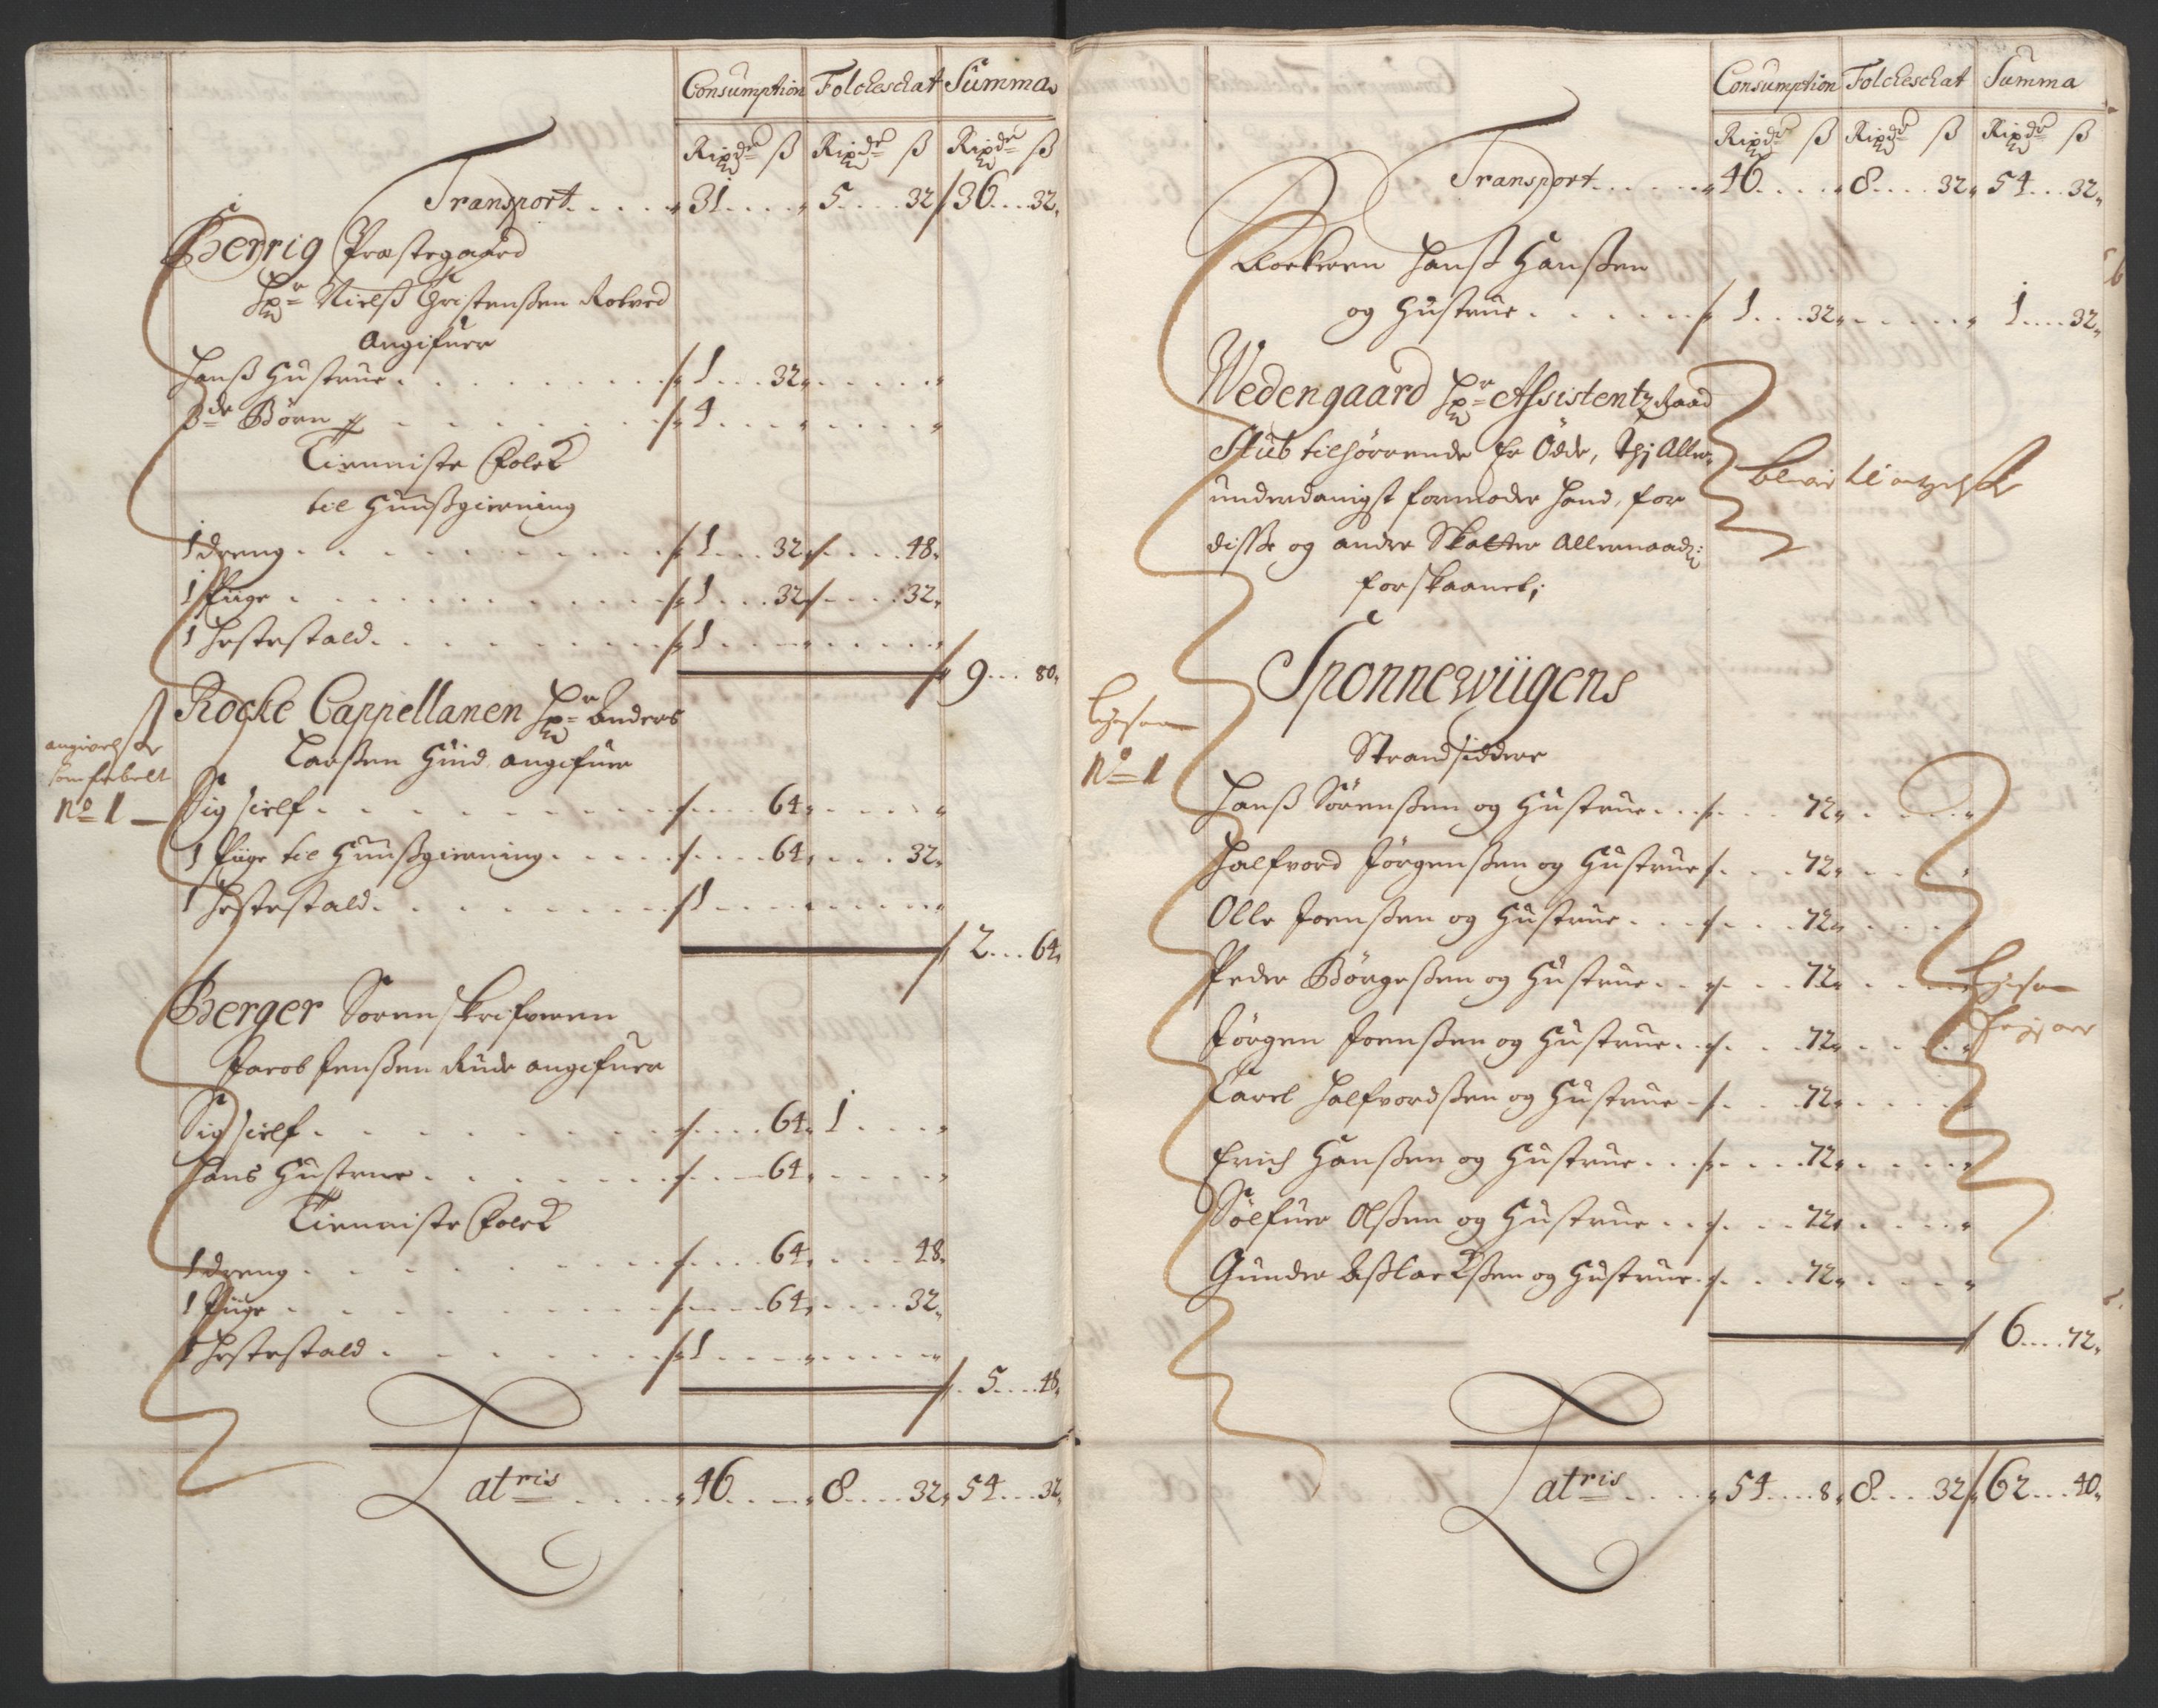 Consumption Folckeschat Summa
Rixdr ß Rixdr ß Rixdr ß
Transport 31 5 32 36 32
Berrig Præstegaard
Hr Nielß Christenßen
Angifuer
Hanß Hustrue 1 32
3de Børn 4
Tienniste Folck
til Huußgierning
1 dreng 1 32 48
1 Piige 1 32 32
1 Hestestald 1
9 80
Rocke Cappellanen Hr Anders
Larßen Hind angifuer
No 1
Sig sielf 64
1 Piige til Huußgierning 64 32
1 Hestestald 1
2 64
Berger Sorenskrifveren
Jacob Jenßen Rude angifuer
Sig sielf 64 1
Hans Hustrue 64
Tienniste Folck
1 dreng 64 48
1 Piige 64 32
1 Hestestald 1
5 48
Latris 46 8 32 54 32
Consumption Folckeschat Summa
Rixdr ß Rixdr ß Rixdr ß
Transport 46 8 32 54 32
Klockeren Hanß Hanßen
og Hustrue 1 32 1 32
Wedengaard Hr Assistentz Raad
Stub tilhørrende er Øde, thj Aller
underdanigst formoder hand, for
disse og andre Skatter Allernaadl:
forskaanet;
Sponnewiigens
Strandsiddere
No 1
Hanß Sørenßen og Hustrue 72
Halfvord Jørgenßen og Hustrue 72
Olle Joenßen og Hustrue 72
Peder Børgeßen og Hustrue 72
Jørgen Joenßen og Hustrue 72
Carel Halfvordßen og Hustrue 72
Erich Hanßen og Hustrue 72
Sølfuer Olßen og Hustrue 72
Gunder Aßlackßen og Hustrue 72
6 72
Latris 54 8 8 32 62 40